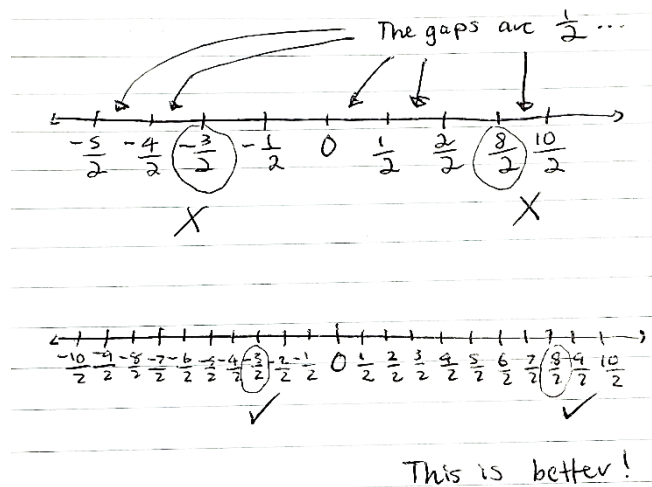 The gaps are 1/2 ...
-5/2 -4/2 -3/2 -1/2 0 1/2 2/2 8/2 10/2
X X
-10/2 -9/2 -8/2 -7/2 -6/2 -5/2 -4/2 -3/2 -2/2 -1/2 0 1/2 2/2 3/2 4/2 5/2 6/2 7/2 8/2 9/2 10/2
✓ ✓
This is better!